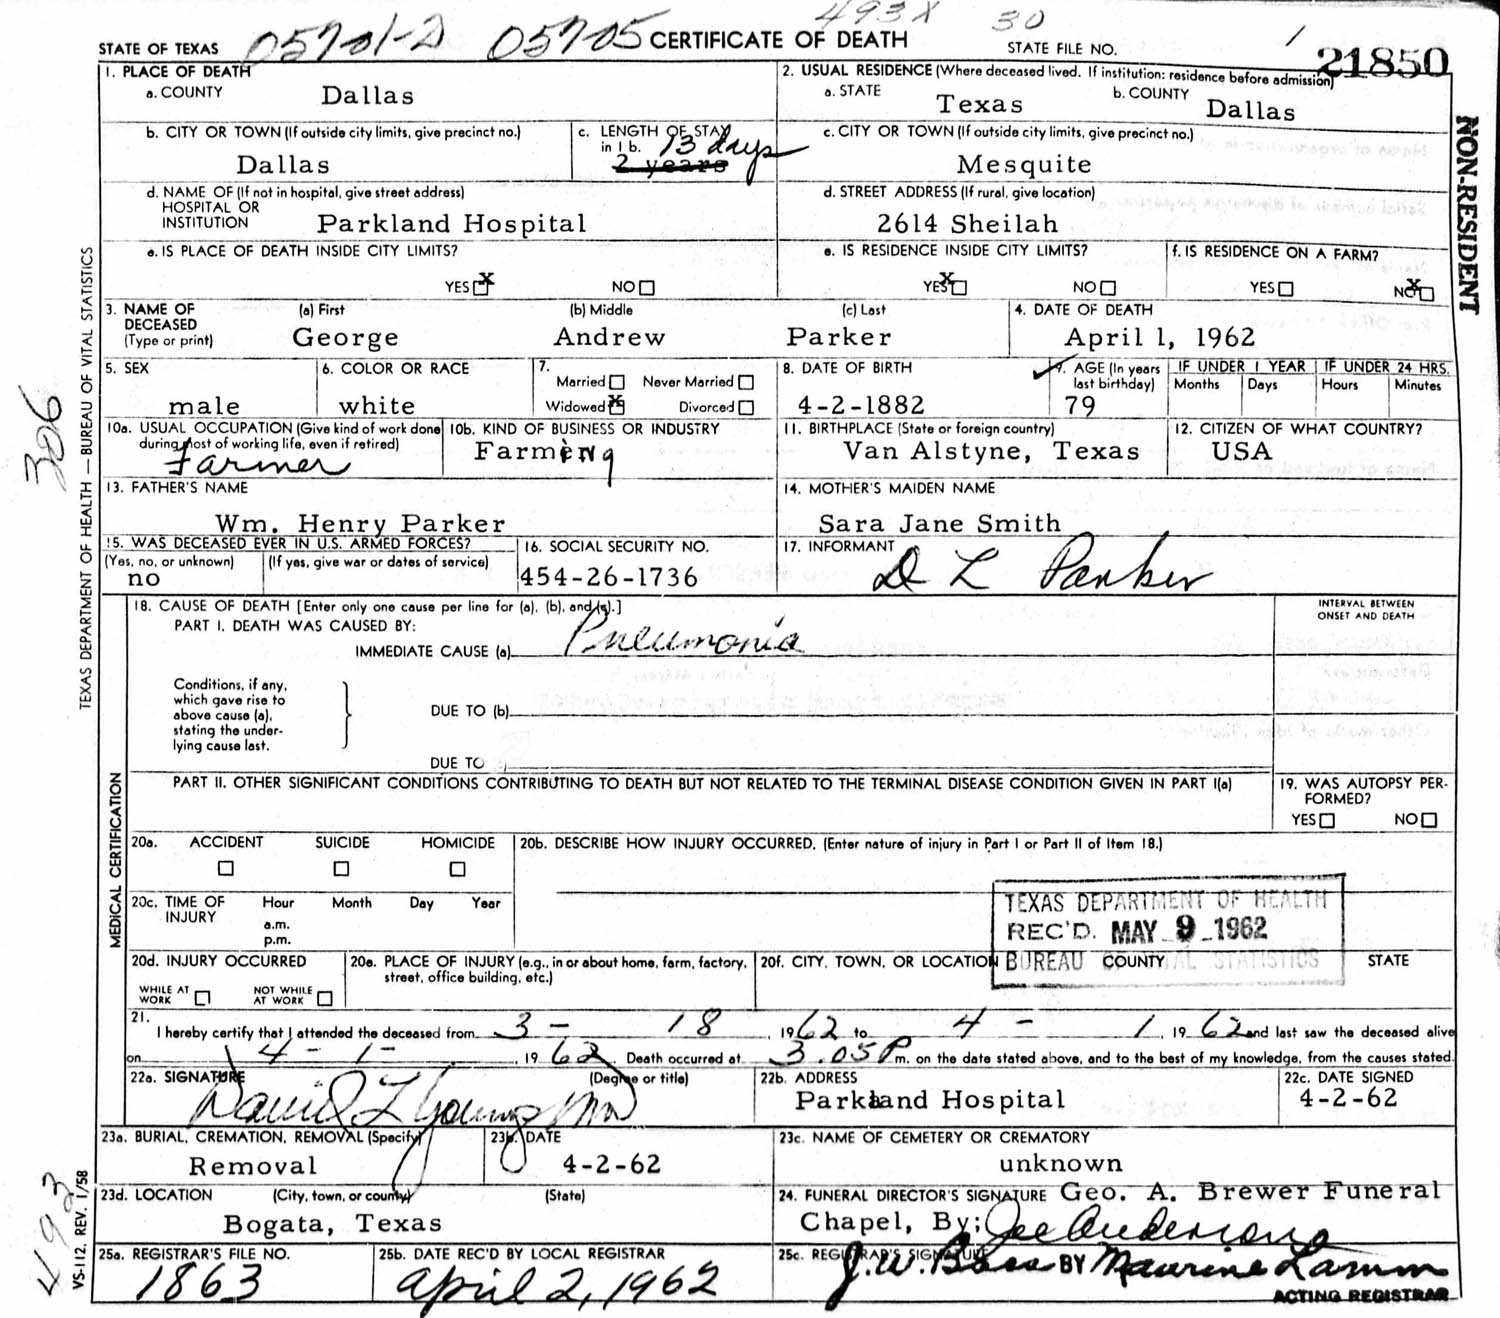 493X 30
1
STATE OF TEXAS 05701-2 05705 CERTIFICATE OF DEATH STATE FILE NO. 21850
NON-RESIDENT
1. PLACE OF DEATH
a. COUNTY Dallas
2. USUAL RESIDENCE (Where deceased lived. If institution: residence before admission)
a. STATE Texas b. COUNTY Dallas
b. CITY OR TOWN (If outside city limits, give precinct no.) Dallas
c. LENGTH OF STAY in 1 b. 13 days 2 years
c. CITY OR TOWN (If outside city limits, give precinct no.) Mesquite
d. NAME OF (If not in hospital, give street address)
HOSPITAL OR
INSTITUTION Parkland Hospital
d. STREET ADDRESS (If rural, give location)
2614 Sheilah
e. IS PLACE OF DEATH INSIDE CITY LIMITS?
YES X NO
e. IS RESIDENCE INSIDE CITY LIMITS?
YES X NO
f. IS RESIDENCE ON A FARM?
YES NO X
3. NAME OF DECEASED (Type or print)
(a) First (b) Middle (c) Last
George Andrew Parker
4. DATE OF DEATH
April 1, 1962
5. SEX
male
6. COLOR OR RACE
white
7.
Married Never Married
Widowed X Divorced
8. DATE OF BIRTH
4-2-1882
9. AGE (In years last birthday)
79
IF UNDER 1 YEAR
Months Days
IF UNDER 24 HRS.
Hours Minutes
10a. USUAL OCCUPATION (Give kind of work done
during most of working life, even if retired)
Farmer
10b. KIND OF BUSINESS OR INDUSTRY
Farming
11. BIRTHPLACE (State or foreign country)
Van Alstyne, Texas
12. CITIZEN OF WHAT COUNTRY?
USA
13. FATHER'S NAME
Wm. Henry Parker
14. MOTHER'S MAIDEN NAME
Sara Jane Smith
15. WAS DECEASED EVER IN U.S. ARMED FORCES?
(Yes, no, or unknown) (If yes, give war or dates of service)
no
16. SOCIAL SECURITY NO.
454-26-1736
17. INFORMANT
D L Parker
MEDICAL CERTIFICATION
18. CAUSE OF DEATH [Enter only one cause per line for (a), (b), and (c).]
PART I. DEATH WAS CAUSED BY:
IMMEDIATE CAUSE (a) Pneumonia
INTERVAL BETWEEN
ONSET AND DEATH
Conditions, if any,
which gave rise to
above cause (a),
stating the under-
lying cause last.
DUE TO (b)
DUE TO
PART II. OTHER SIGNIFICANT CONDITIONS CONTRIBUTING TO DEATH BUT NOT RELATED TO THE TERMINAL DISEASE CONDITION GIVEN IN PART I(a)
19. WAS AUTOPSY PER-
FORMED?
YES NO
20a. ACCIDENT SUICIDE HOMICIDE
20b. DESCRIBE HOW INJURY OCCURRED. (Enter nature of injury in Part I or Part II of Item 18.)
20c. TIME OF INJURY
Hour Month Day Year
a.m.
p.m.
TEXAS DEPARTMENT OF HEALTH
REC'D. MAY 9 1962
BUREAU OF VITAL STATISTICS
20d. INJURY OCCURRED
WHILE AT WORK NOT WHILE AT WORK
20e. PLACE OF INJURY (e.g., in or about home, farm, factory,
street, office building, etc.)
20f. CITY, TOWN, OR LOCATION COUNTY STATE
21.
I hereby certify that I attended the deceased from 3 - 18, 1962 to 4 - 1, 1962 and last saw the deceased alive
on 4 - 1 -, 1962 Death occurred at 3:05 P m. on the date stated above, and to the best of my knowledge, from the causes stated.
22a. SIGNATURE (Degree or title)
David L Young MD
22b. ADDRESS
Parkland Hospital
22c. DATE SIGNED
4-2-62
23a. BURIAL, CREMATION, REMOVAL (Specify)
Removal
23b. DATE
4-2-62
23c. NAME OF CEMETERY OR CREMATORY
unknown
23d. LOCATION (City, town, or county) (State)
Bogata, Texas
24. FUNERAL DIRECTOR'S SIGNATURE Geo. A. Brewer Funeral
Chapel, By; Joe Anderson
25a. REGISTRAR'S FILE NO.
1863
25b. DATE REC'D BY LOCAL REGISTRAR
April 2, 1962
25c. REGISTRAR'S SIGNATURE
J.W. Bass BY Maurine Lamm
ACTING REGISTRAR
TEXAS DEPARTMENT OF HEALTH — BUREAU OF VITAL STATISTICS
306
493
VS-112. REV. 1/58